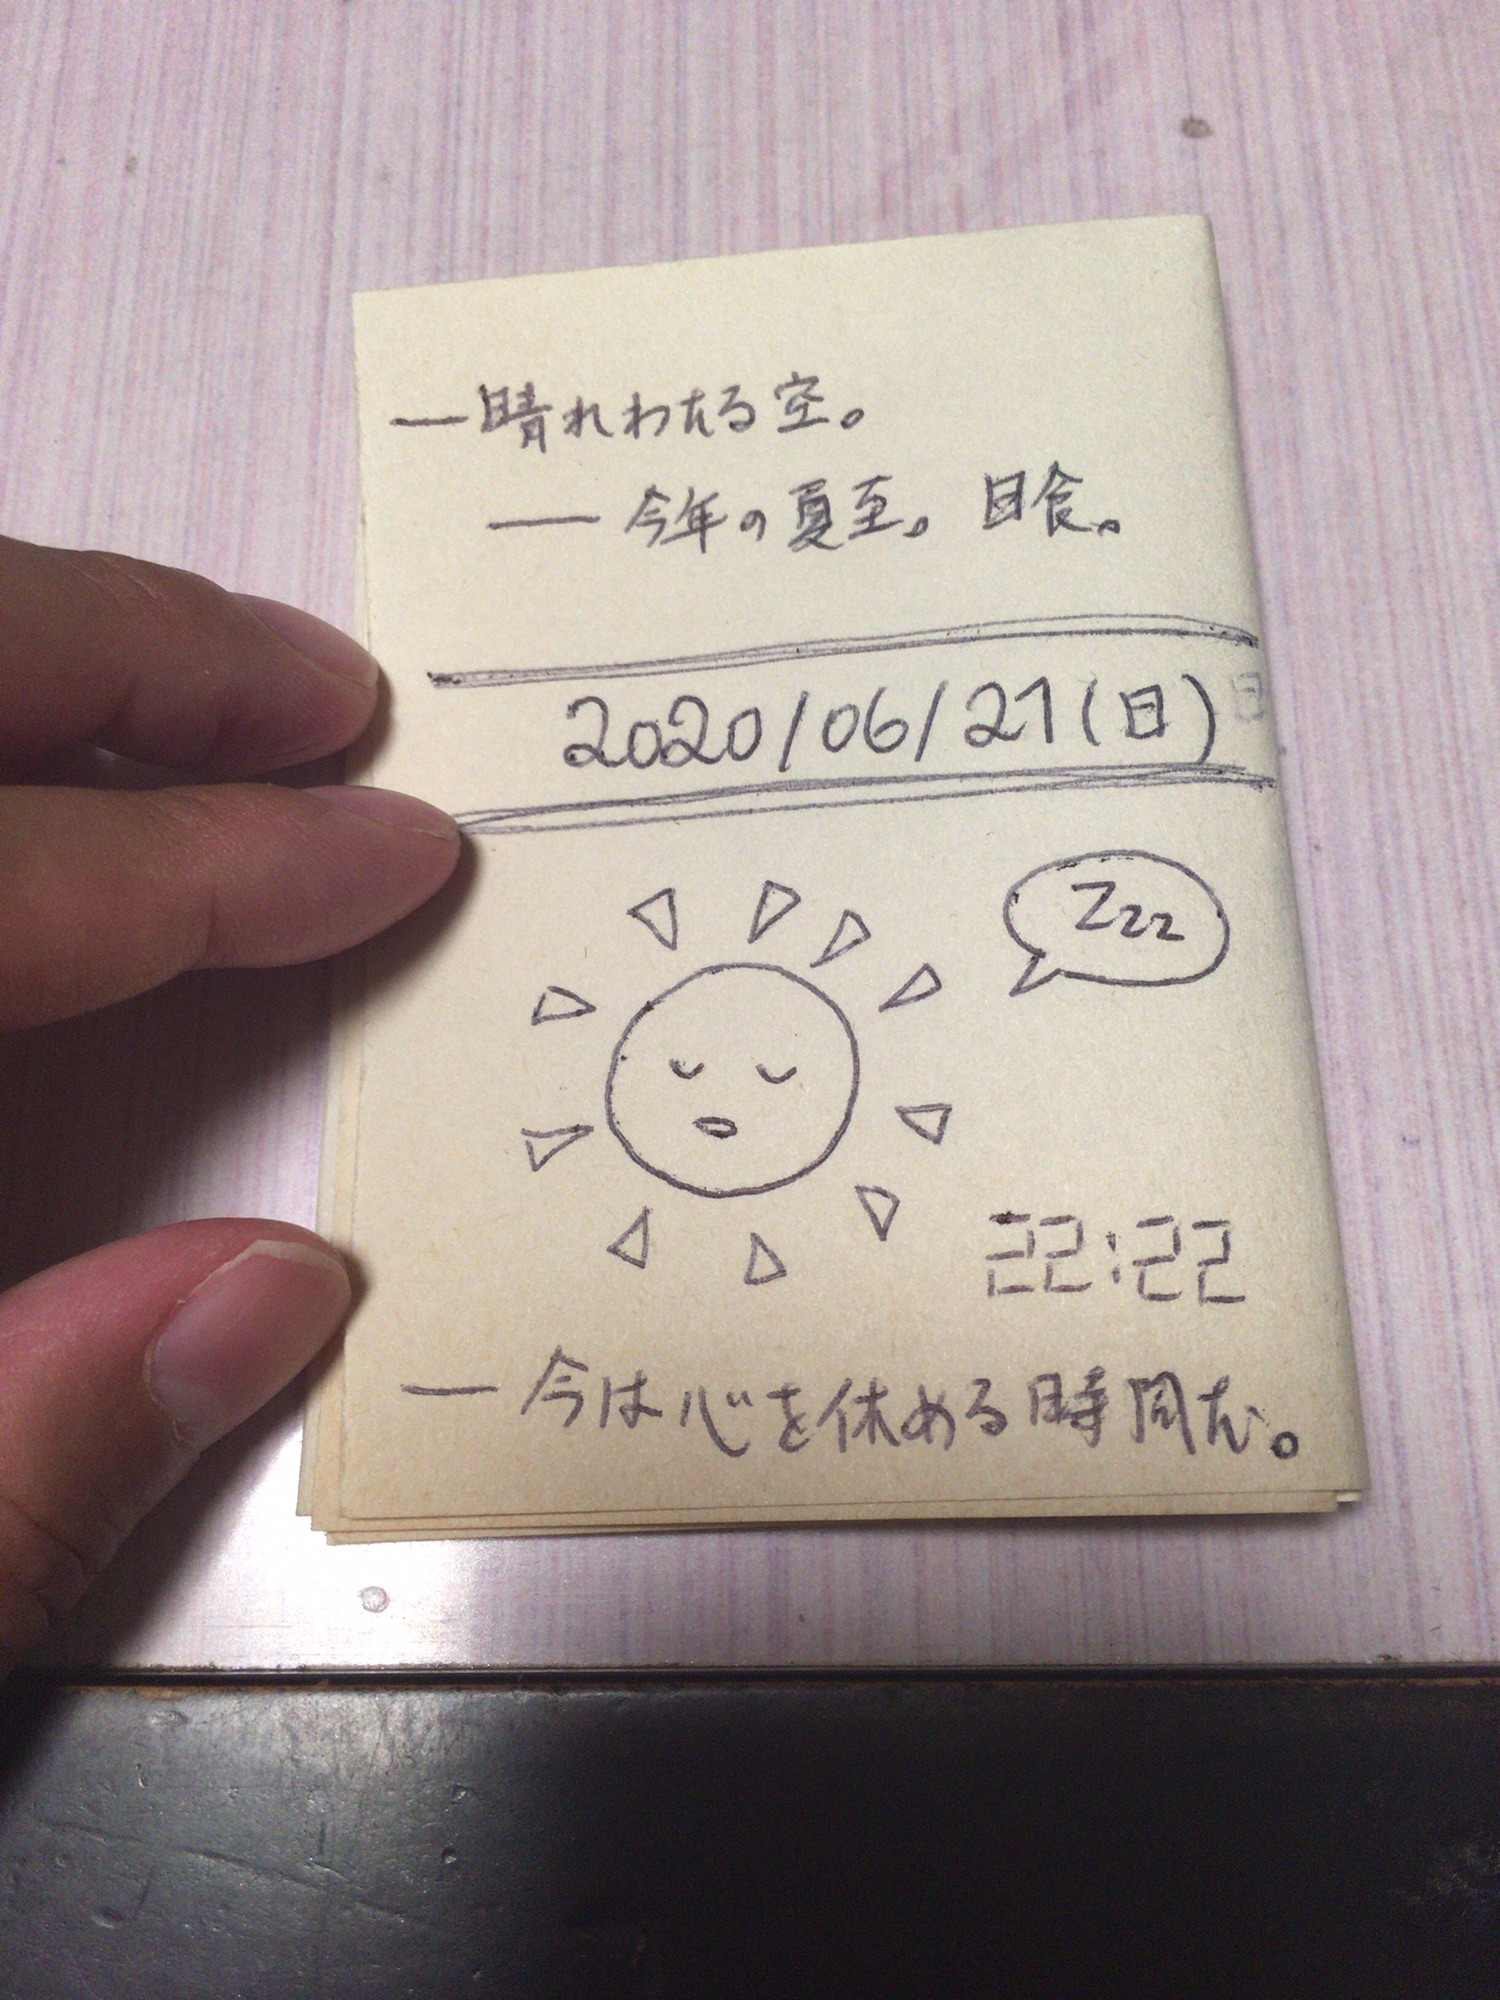 —晴れわたる空。
—今年の夏至。日食。
2020/06/21(日)
Zzz
22:22
—今は心を休める時間だ。